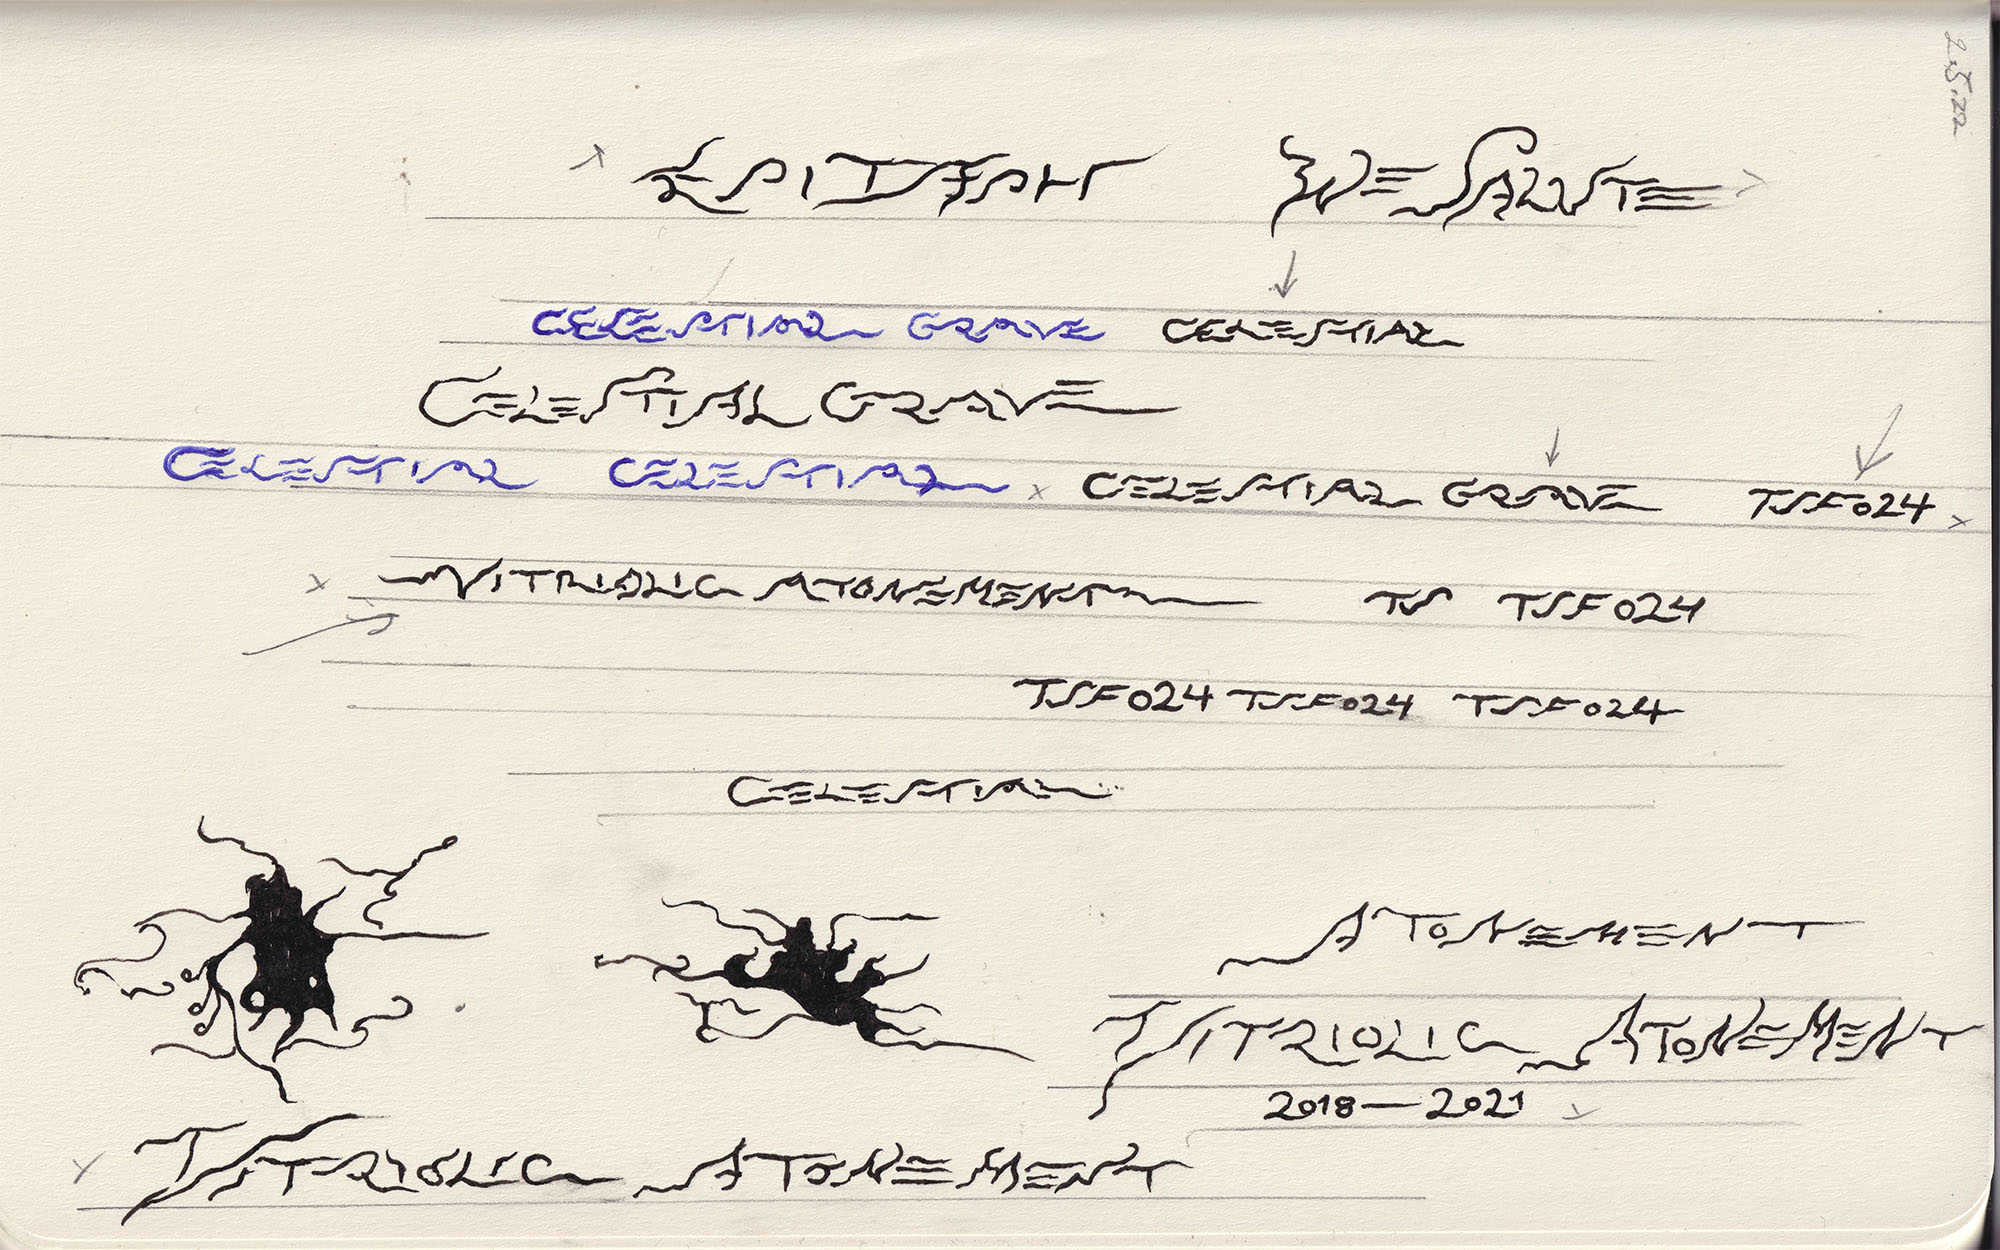 2.5.22
EPITAPH WE SALUTE
CELESTIAL GRAVE CELESTIAL
CELESTIAL GRAVE
CELESTIAL CELESTIAL x CELESTIAL GRAVE TSF024 x
x VITRIOLIC ATONEMENT TS TSF024
TSF024 TSF024 TSF024
CELESTIAL
ATONEMENT
VITRIOLIC ATONEMENT
2018—2021 x
x VITRIOLIC ATONEMENT